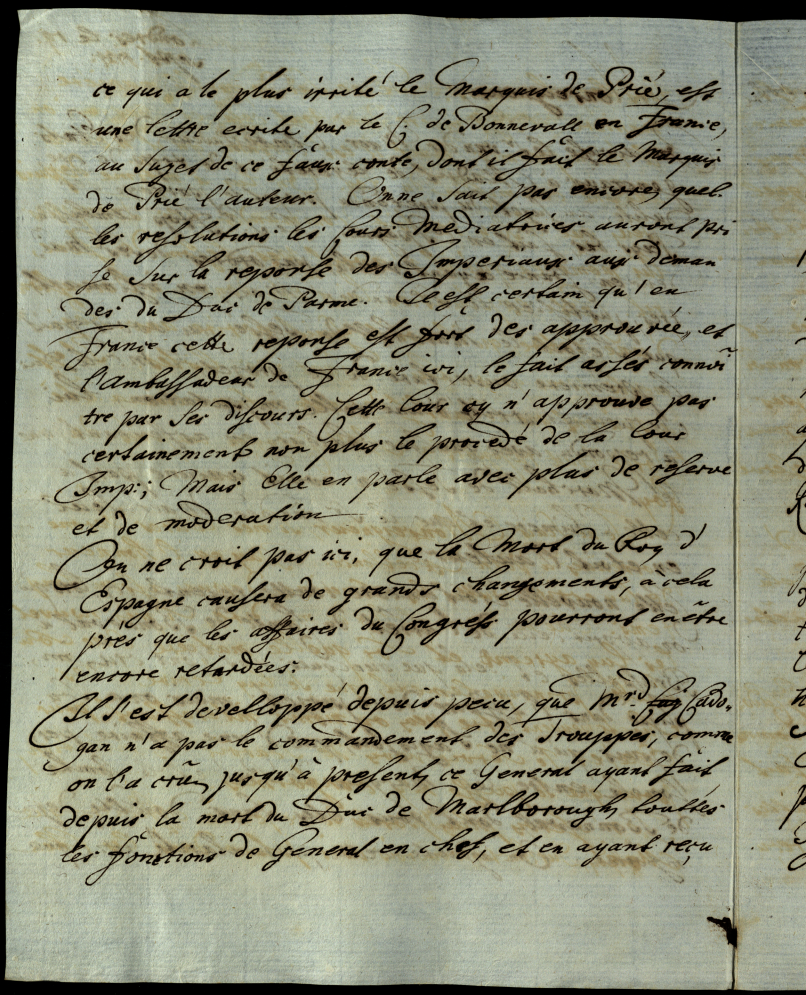 ce qui a le plus irrité le Marquis de Prié, est
une lettre ecrite par le C: de Bonnevall en France,
au sujet de ce faux conte, dont il fait le Marquis
de Prié l'auteur. On ne sait pas encore, quel-
les resolutions les Cours Mediatrices auront pri
se sur la reponse des Imperiaux aux deman
des du Duc de Parme. Il est certain qu'en
France cette reponse est fort des approuvée, et
l'ambassadeur de France ici, le fait assés connoî
tre par ses discours. Cette Cour cy n'approuve pas
certainement non plus le procedé de la Cour
Imp:; Mais Elle en parle avec plus de reserve
et de moderation
On ne croit pas ici, que la Mort du Roy d'
Espagne causera de grands changements, à cela
prés que les affaires du Congrés pourront en être
encore retardées.
Il s'est develloppé depuis pecu, que Mrd. Cado-
gan n'a pas le commandement des Trouppes, comme
on l'a crû jusqu'à present, ce General ayant fait
depuis la mort du Duc de Marlborough, touttes
les fonctions de General en chef, et en ayant reçu